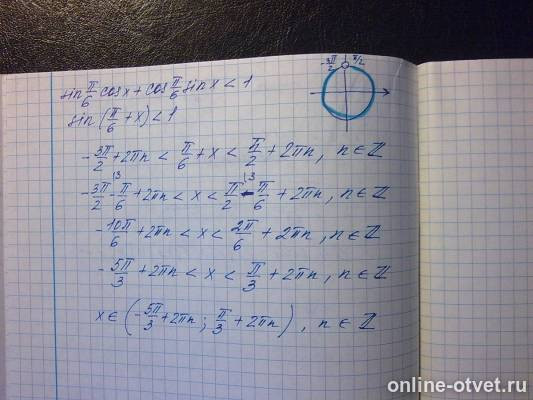 -3π/2 π/2
sin π/6 cos x + cos π/6 sin x < 1
sin (π/6 + x) < 1
-3π/2 + 2πn < π/6 + x < π/2 + 2πn, n ∈ ℤ
-3π/2 - π/6 + 2πn < x < π/2 - π/6 + 2πn, n ∈ ℤ
-10π/6 + 2πn < x < 2π/6 + 2πn, n ∈ ℤ
-5π/3 + 2πn < x < π/3 + 2πn, n ∈ ℤ
x ∈ (-5π/3 + 2πn ; π/3 + 2πn), n ∈ ℤ
online-otvet.ru